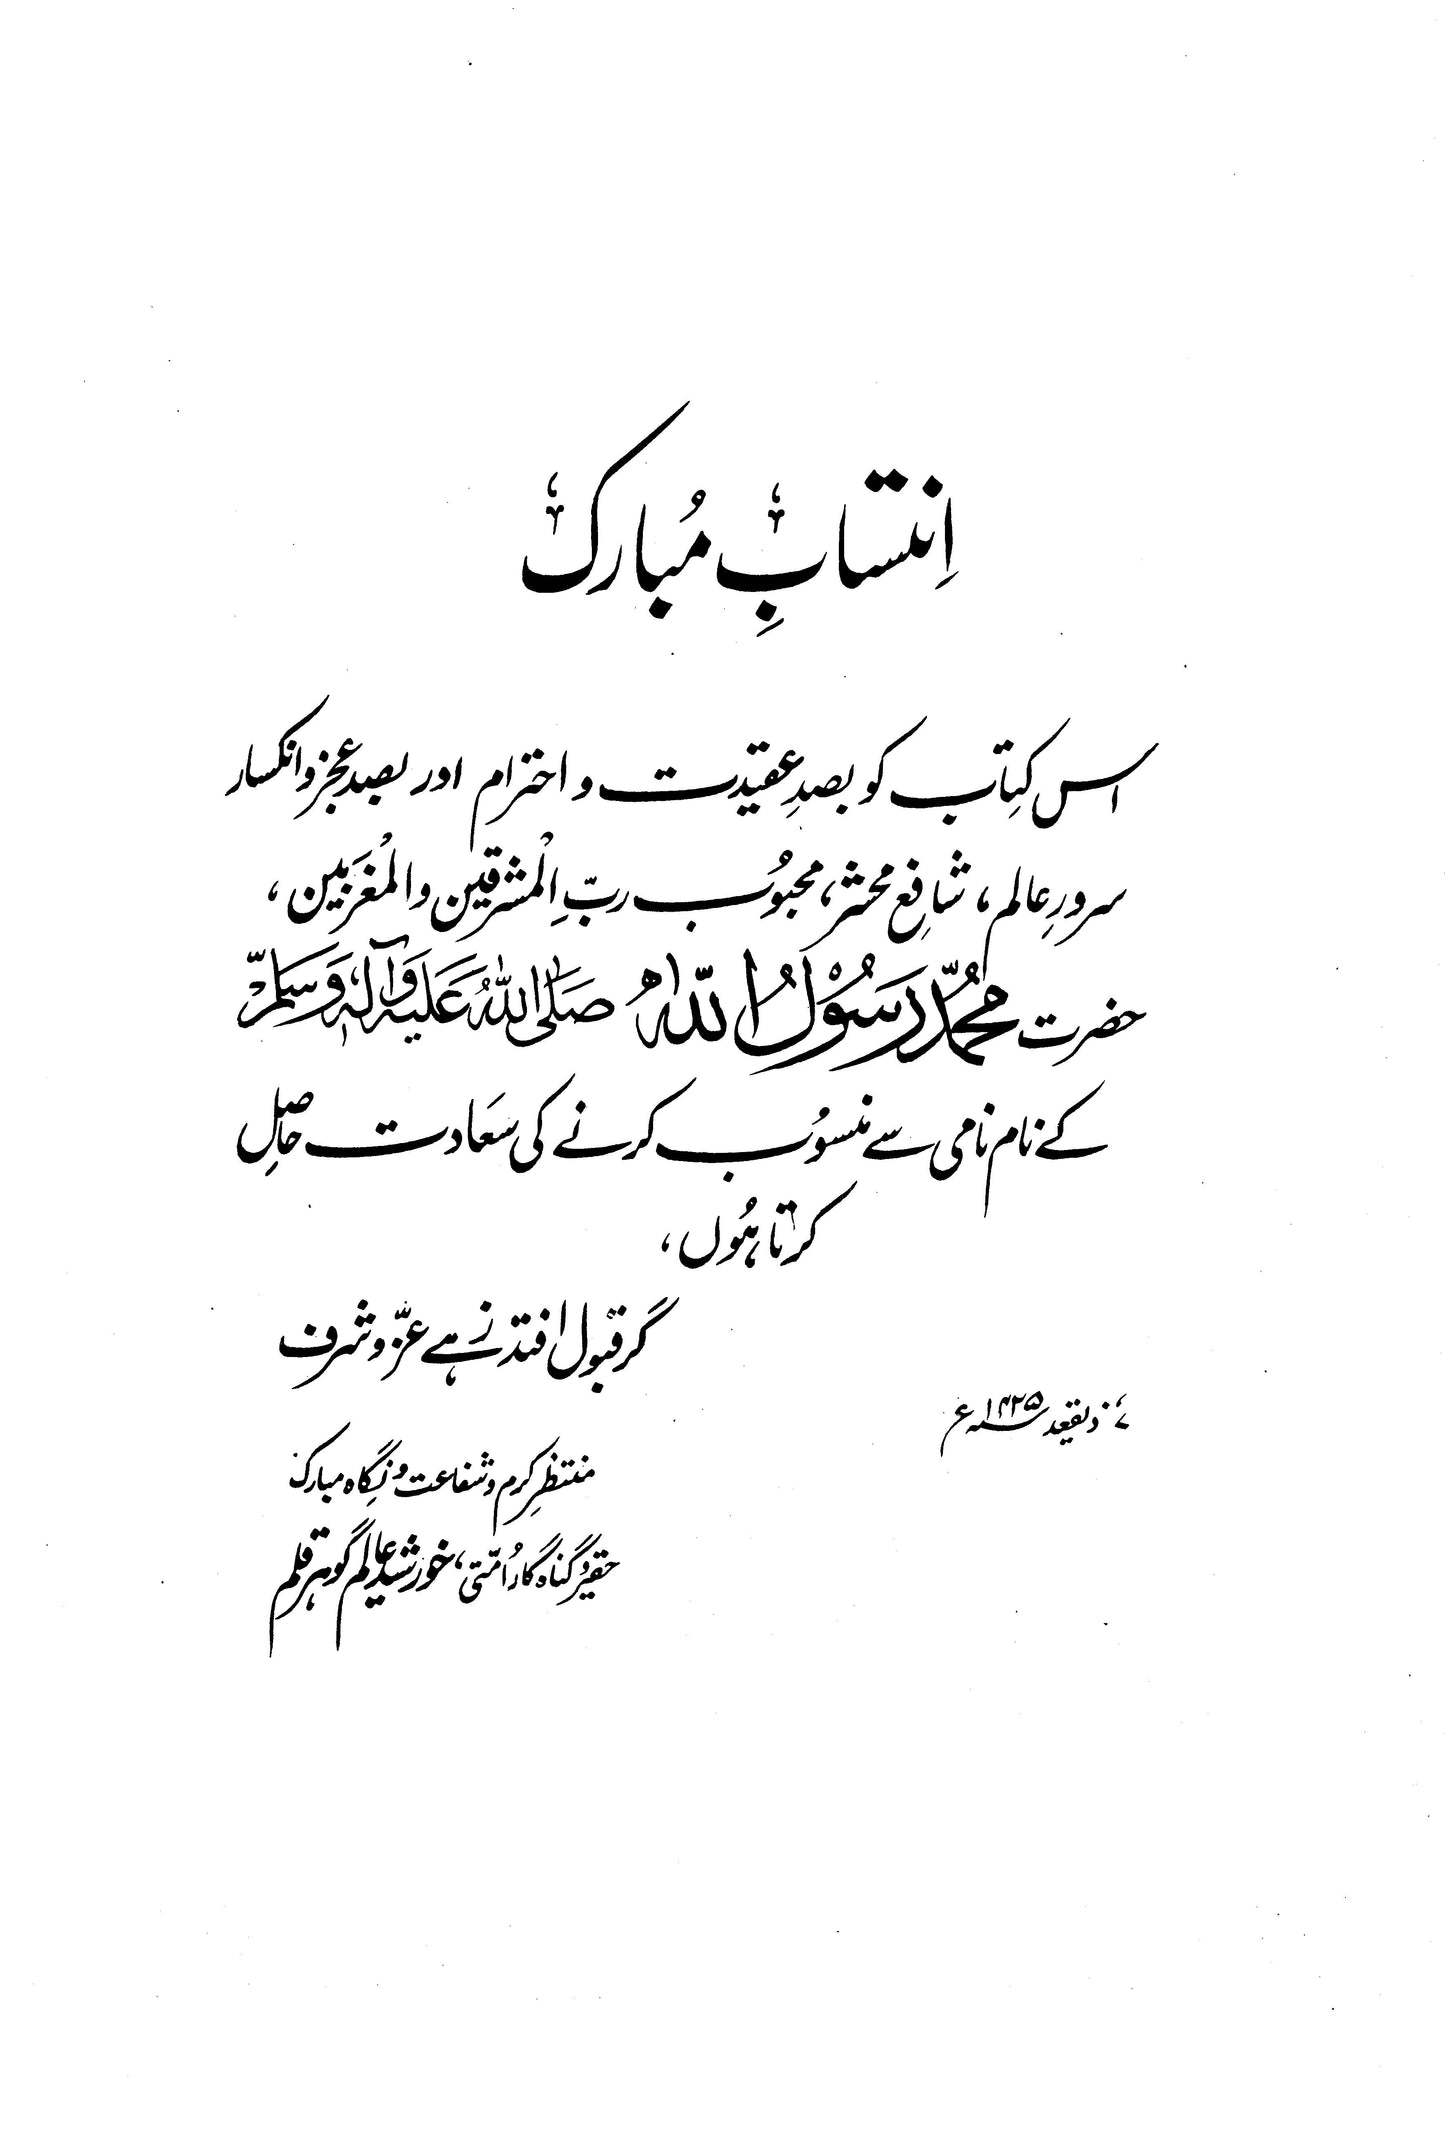 اِنتسابِ مُبارک
اس کِتاب کو بصدِ عقیدت و احترام اور بصد عجز و انکسار
سرورِ عالم، شافِع محشر، محبوُب ربِّ اِلْمشرقین والْمغرَبین،
حضرت مُحمّد رَسُوْلُ اللّٰہُ صَلَّی اللّٰہُ عَلَیہِ وَآلِہٖ وَسَلَّمْ
کے نام نامی سے منسوُب کرنے کی سَعادت حاصِل
کرتا ہُوں،
گر قبول افتد زہے عزّ و شرف
۷؍ ذیقعد ۱۴۲۵؁ء
منتظرِ کرم و شفاعت و نِگاہ مبارک
حقیرُ گناہ گار اُمّتی، خورشید عالم گوہر قلم